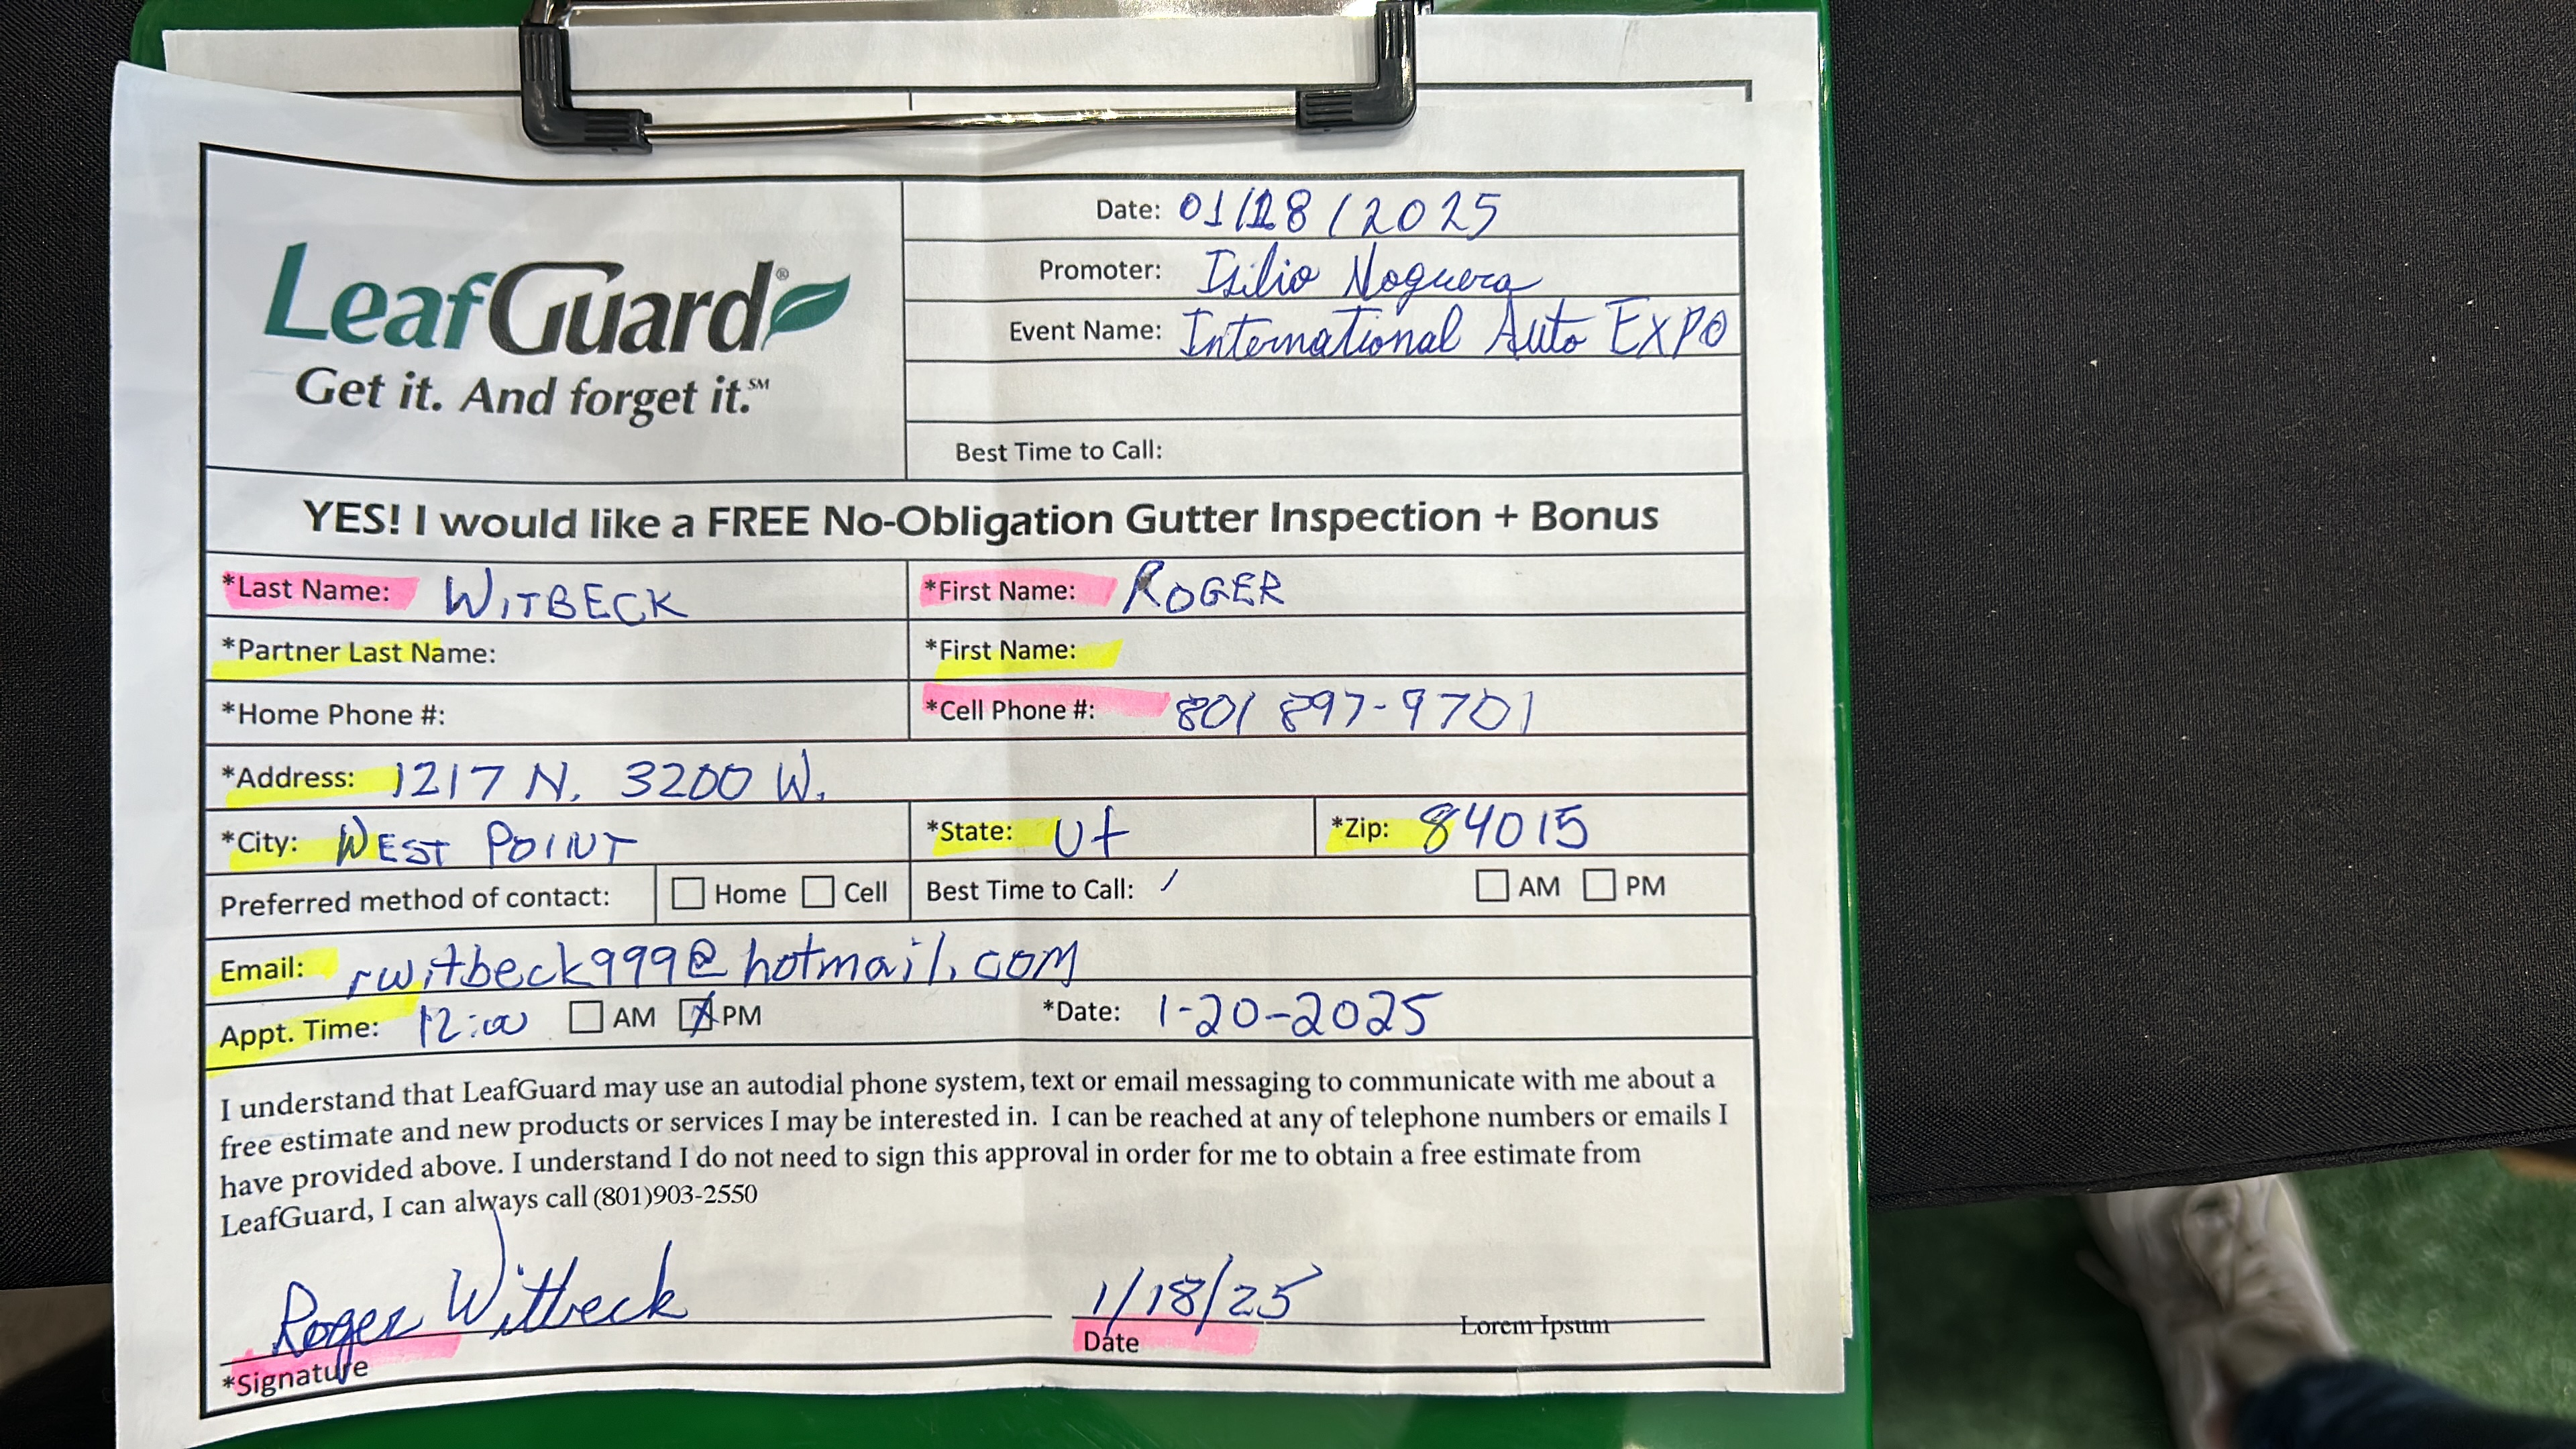 LeafGuard®
Get it. And forget it.℠
Date: 01/18/2025
Promoter: Isilio Noguera
Event Name: International Auto Expo
Best Time to Call:
YES! I would like a FREE No-Obligation Gutter Inspection + Bonus
*Last Name: WITBECK *First Name: ROGER
*Partner Last Name: *First Name:
*Home Phone #: *Cell Phone #: 801 897-9701
*Address: 1217 N. 3200 W.
*City: WEST POINT *State: Ut *Zip: 84015
Preferred method of contact: Home Cell Best Time to Call: AM PM
Email: rwitbeck999@hotmail.com
Appt. Time: 12:00 AM PM *Date: 1-20-2025
I understand that LeafGuard may use an autodial phone system, text or email messaging to communicate with me about a
free estimate and new products or services I may be interested in. I can be reached at any of telephone numbers or emails I
have provided above. I understand I do not need to sign this approval in order for me to obtain a free estimate from
LeafGuard, I can always call (801)903-2550
Roger Witbeck 1/18/25 Lorem Ipsum
*Signature Date